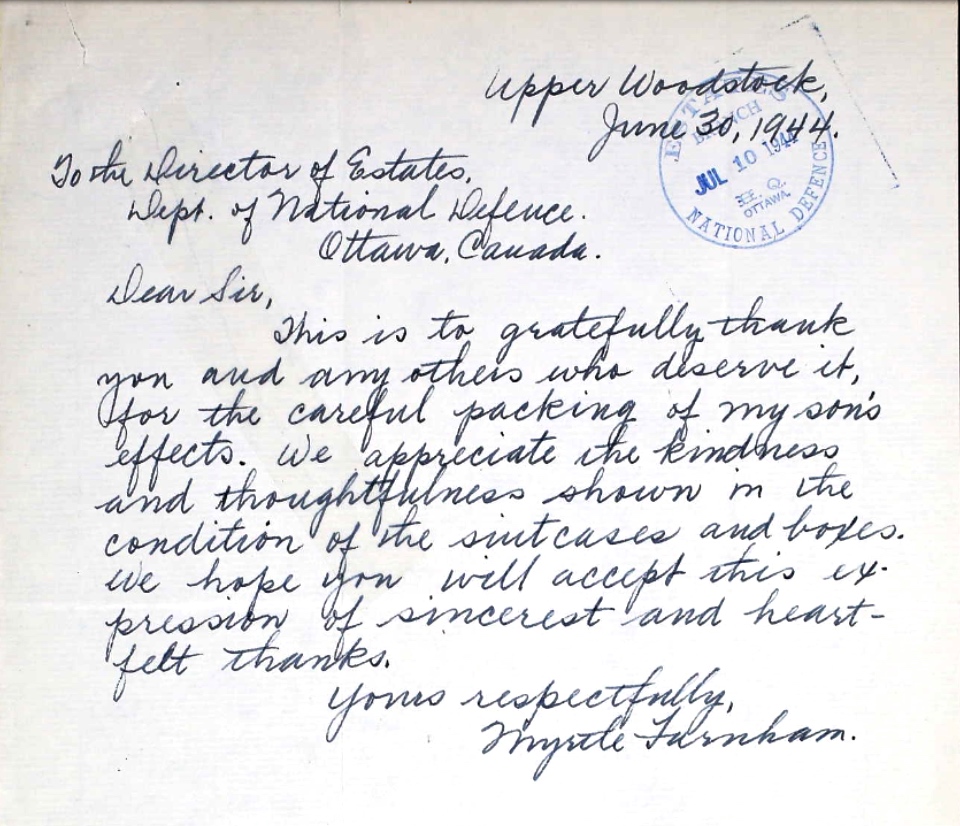 Upper Woodstock,
June 30, 1944.
ESTATES
BRANCH
JUL 10 1944
OTTAWA.
NATIONAL DEFENCE
To the Director of Estates,
Dept. of National Defence.
Ottawa, Canada.
Dear Sir,
This is to gratefully thank
you and any others who deserve it,
for the careful packing of my son's
effects. We appreciate the kindness
and thoughtfulness shown in the
condition of the suitcases and boxes.
We hope you will accept this ex-
pression of sincerest and heart-
felt thanks.
Yours respectfully,
Myrtle Furnham.